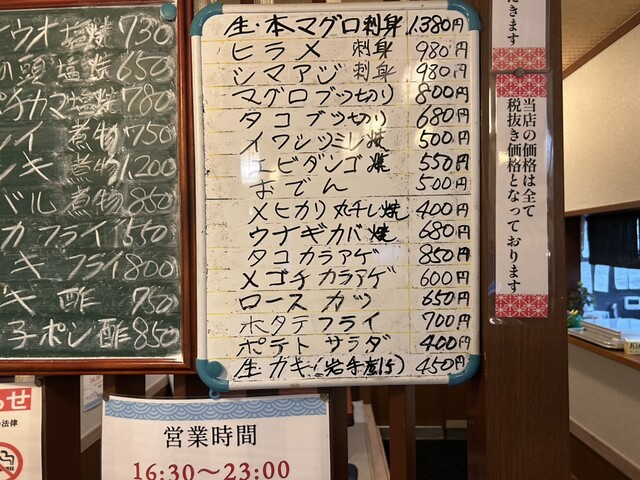 ウオ塩焼 730
の頭塩焼 650
チカマ塩焼 780
イ 煮物 750
キ 煮物 1,200
バル 煮物 860
カフライ 550
キ フライ 800
キ 酢 750
子ポン酢 850
生・本マグロ刺身 1,380円
ヒラメ 刺身 980円
シマアジ 刺身 980円
マグロブツ切り 800円
タコ ブツ切り 680円
イワシツミレ焼 500円
エビダンゴ焼 550円
おでん 500円
メヒカリ丸干し焼 400円
ウナギカバ焼 680円
タコカラアゲ 850円
メゴチカラアゲ 600円
ロースカツ 650円
ホタテフライ 700円
ポテトサラダ 400円
生ガキ(岩手産1ケ) 450円
だきます
当店の価格は全て
税抜き価格となっております
らせ
法律
営業時間
16:30〜23:00